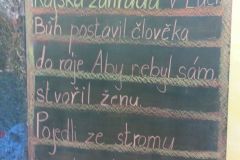 Rajská zahrada v Edenu
Bůh postavil člověka
do ráje Aby nebyl sám,
stvořil ženu.
Pojedli ze stromu